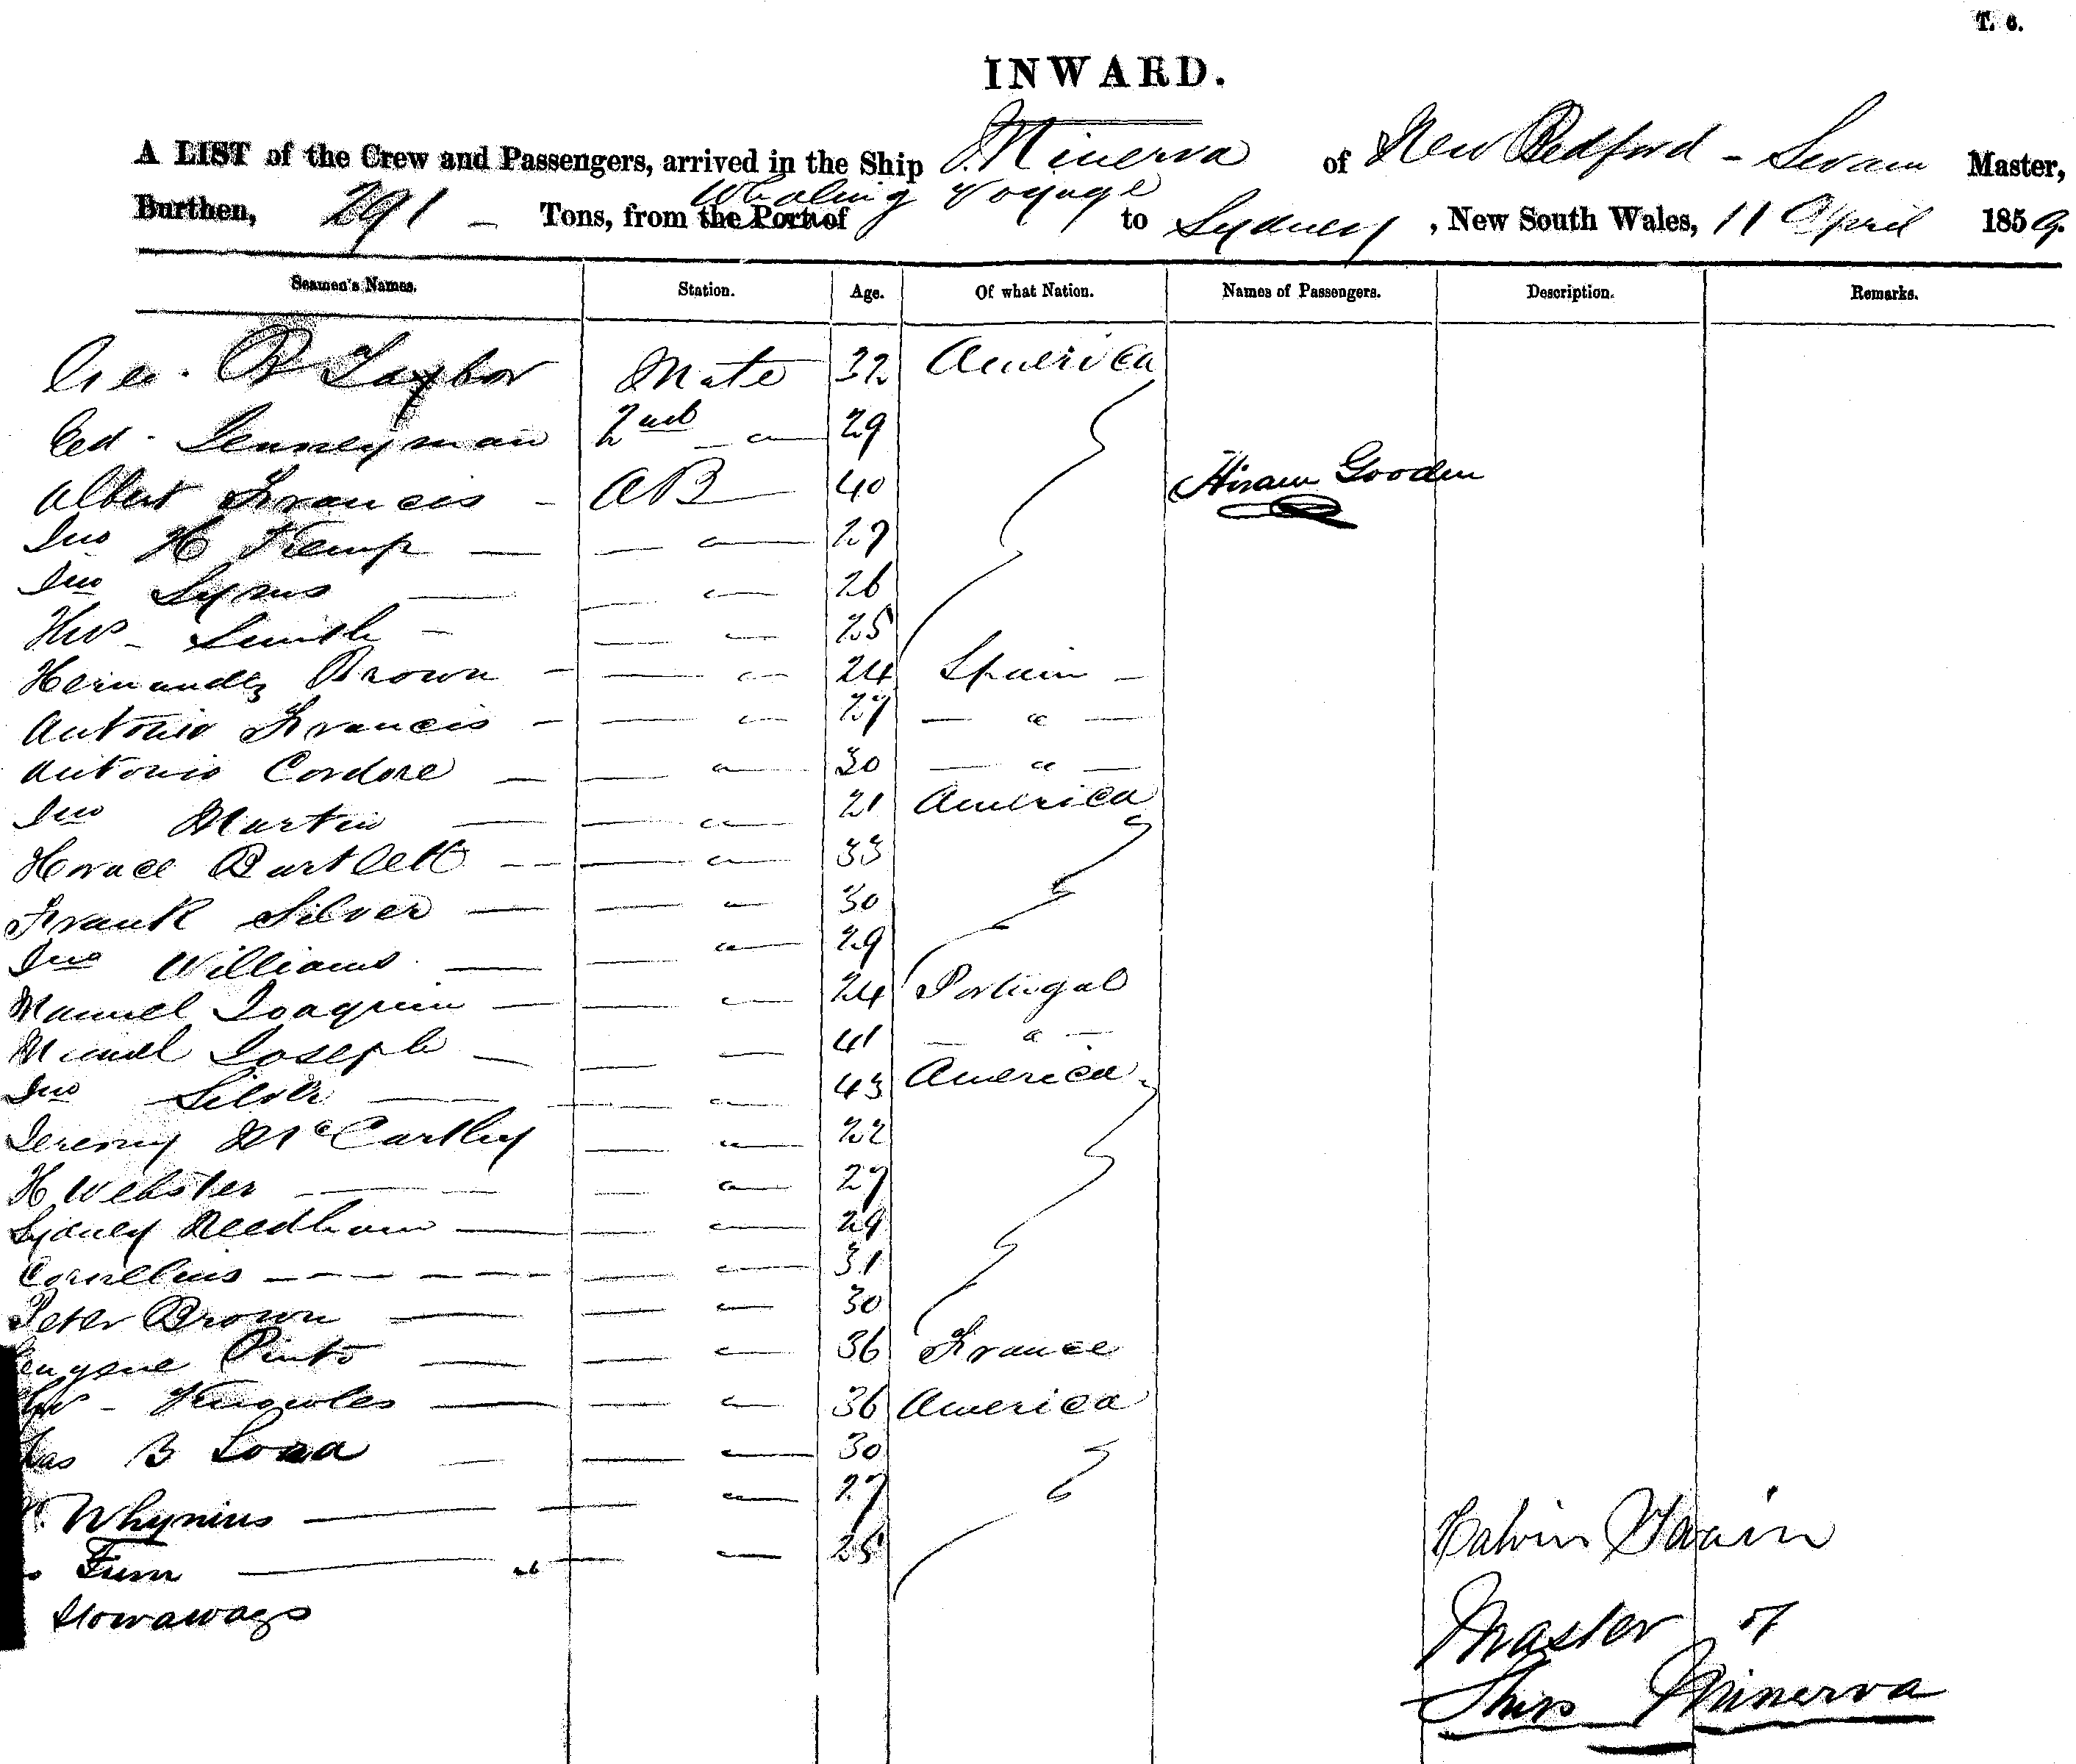 T. 6.
INWARD.
A LIST of the Crew and Passengers, arrived in the Ship Minerva of New Bedford - Swain Master,
Burthen, 291 - Tons, from the Port of Whaling Voyage to Sydney, New South Wales, 11 April 1859.
Seamen's Names. Station. Age. Of what Nation. Names of Passengers. Description. Remarks.
Geo. B Taylor Mate 32 America
Ed. 2nd " 29
Albert Francis - AB 40 Hiram Gooden
Jno H Kemp — — " — 27
Jno Lyons — — " — 26
Smith - — " — 25
Hernandez Brown - — " — 24 Spain -
Antonio Francis - — " — 27 — " —
Antonio Cordore — — " — 30 — " —
Jno Martin — — " — 21 America
Horace Bartlett — — " — 33
Frank Silver — — " — 30
Jno Williams — — " — 29
Manuel Joaquim — — " — 24 Portugal
Joseph — — — 41 — " —
Jno Silva — — " — 43 America
Jeremy McCarthy — " — 22
H Webster — — " — 27
Sydney Needham — — " — 29
Cornelius - - - - - - — " — 31
Peter Brown — — " — 30
Eugene Pinto — — " — 36 France
Knowles — — " — 36 America
B — — " — 30
Whynius — — " — 27
— — " — 25
Stowaways
Calvin Swain
Master of
Ship Minerva